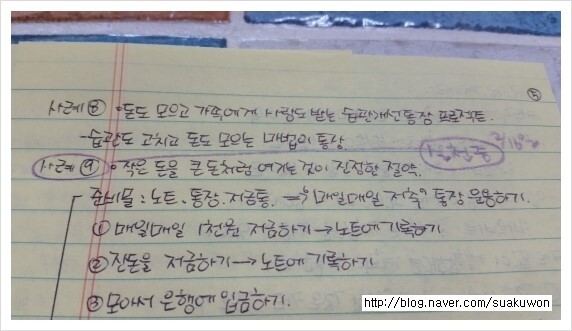 ⑤
사례⑧ •돈도 모으고 가족에게 사랑도 받는 습관개선통장 프로젝트.
-습관도 고치고 돈도 모으는 마법의 통장.
실천중
사례⑨ •작은 돈을 큰 돈처럼 여기는 것이 진정한 절약.
준비물: 노트, 통장, 저금통. → "매일매일 저축" 통장 운용하기.
① 매일매일 1천원 저금하기→노트에 기록하기
② 잔돈을 저금하기→노트에 기록하기
③ 모아서 은행에 입금하기.
http://blog.naver.com/suakuwon